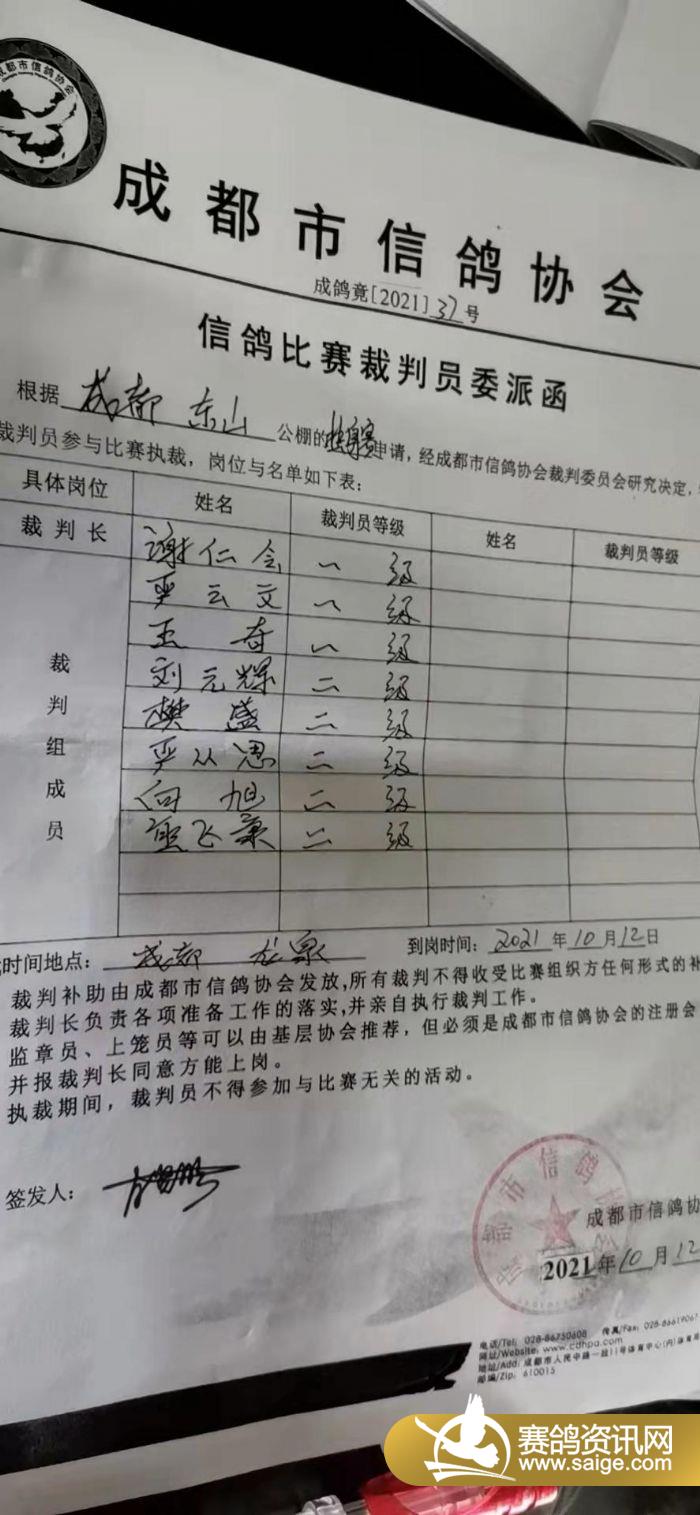 成都市信鸽协会
成都市信鸽协会
成鸽竞[2021]37号
信鸽比赛裁判员委派函
根据 成都 东山 公棚的 申请，经成都市信鸽协会裁判委员会研究决定，
裁判员参与比赛执裁，岗位与名单如下表：
具体岗位 姓名 裁判员等级 姓名 裁判员等级
裁判长 谢仁会 一级
裁判组成员
严云文 一级
王奇 一级
刘元辉 二级
樊盛 二级
严从思 二级
向旭 二级
熊飞 二级
时间地点：成都 龙泉 到岗时间：2021年10月12日
裁判补助由成都市信鸽协会发放，所有裁判不得收受比赛组织方任何形式的补
裁判长负责各项准备工作的落实，并亲自执行裁判工作。
监章员、上笼员等可以由基层协会推荐，但必须是成都市信鸽协会的注册会
并报裁判长同意方能上岗。
执裁期间，裁判员不得参加与比赛无关的活动。
签发人：
成都市信鸽协
2021年10月12
电话/Tel: 028-86750608 传真/Fax: 028-86619067
网址/Website: www.cdhpa.com
地址/Add: 成都市人民中路一段11号体育中心(内)体育局
邮编/Zip: 610015
赛鸽资讯网
www.saige.com